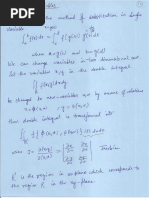 the method of substitution in single
variable
∫ₐᵇ f(x)dx = ∫ f{g(u)} g'(u) du
where x = g(u) and b = g(d)
We can change variables in two dimensional
let the variables x, y in the double integral
∬ f(x,y) dxdy
R
be changed to new variables u, v by means of
x = φ(u,v) ; y = ψ(u,v)
then double integral is transformed into
∬ f{φ(u,v), ψ(u,v)} |J| du dv
R'
where J = ∂(x,y)/∂(u,v) =
R' is the region in uv plane which corresponds to
the region R in the xy-plane.